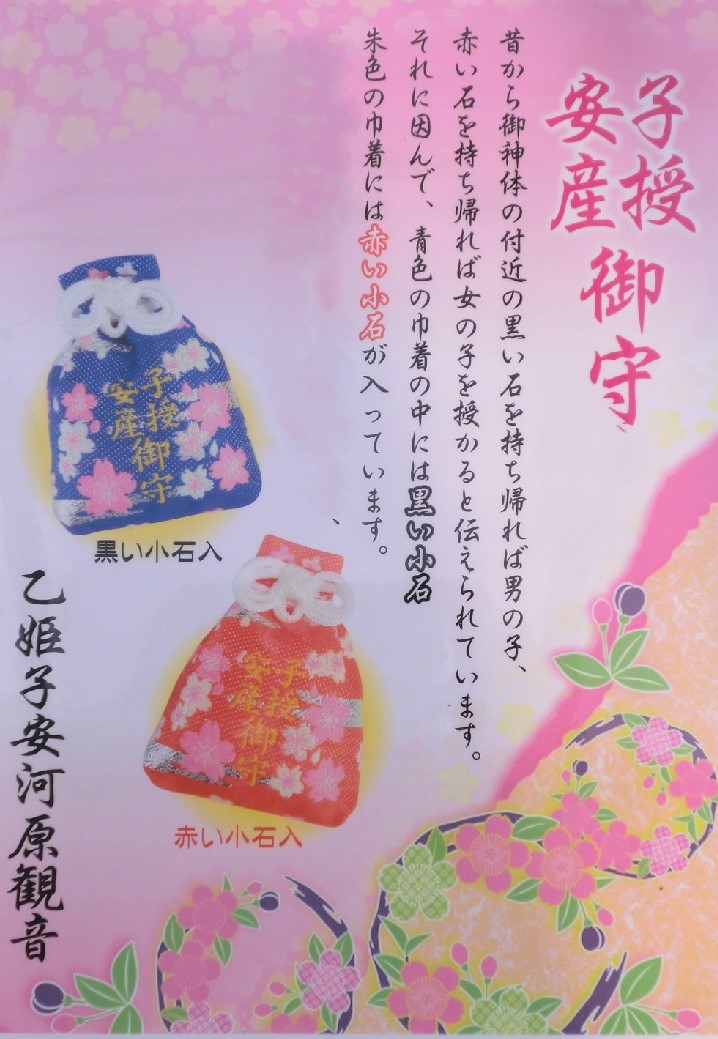 子授
安産
御守
昔から御神体の付近の黒い石を持ち帰れば男の子、
赤い石を持ち帰れば女の子を授かると伝えられています。
それに因んで、青色の巾着の中には黒い小石
朱色の巾着には赤い小石が入っています。
、
子授
安産
御守
黒い小石入
子授
安産
御守
赤い小石入
乙姫子安河原観音